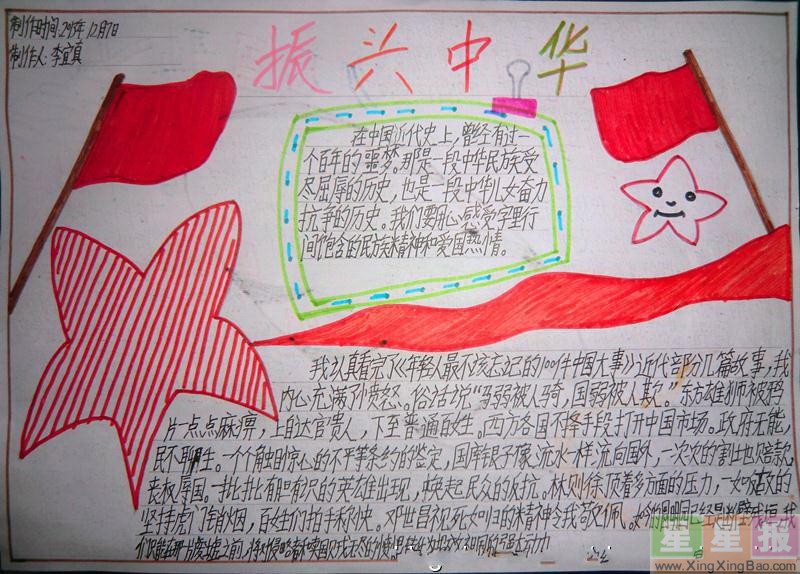 制作时间:2015年12月7日
制作人:李宜真
振兴中华
在中国近代史上,曾经有过一
个百年的噩梦。那是一段中华民族受
尽屈辱的历史,也是一段中华儿女奋力
抗争的历史。我们要用心感受字里行
间饱含的民族精神和爱国热情。
我认真看完了《年轻人最不该忘记的100件中国大事》近代部分几篇故事,我
内心充满了愤怒。俗话说“马弱被人骑,国弱被人欺”东方雄狮被鸦
片点点麻痹,上自达官贵人,下至普通百姓。西方各国不择手段打开中国市场。政府无能,
民不聊生。一个个触目惊心的不平等条约的鉴定,国库银子像流水一样流向国外,一次次的割土也赔款,
丧权辱国。一批批有胆有识的英雄出现,唤起民众的反抗。林则徐顶着多方面的压力,一如既故的
坚持虎门销烟,百姓们拍手称快。邓世昌视死如归的精神令我敬佩。
星星报
www.XingXingBao.com